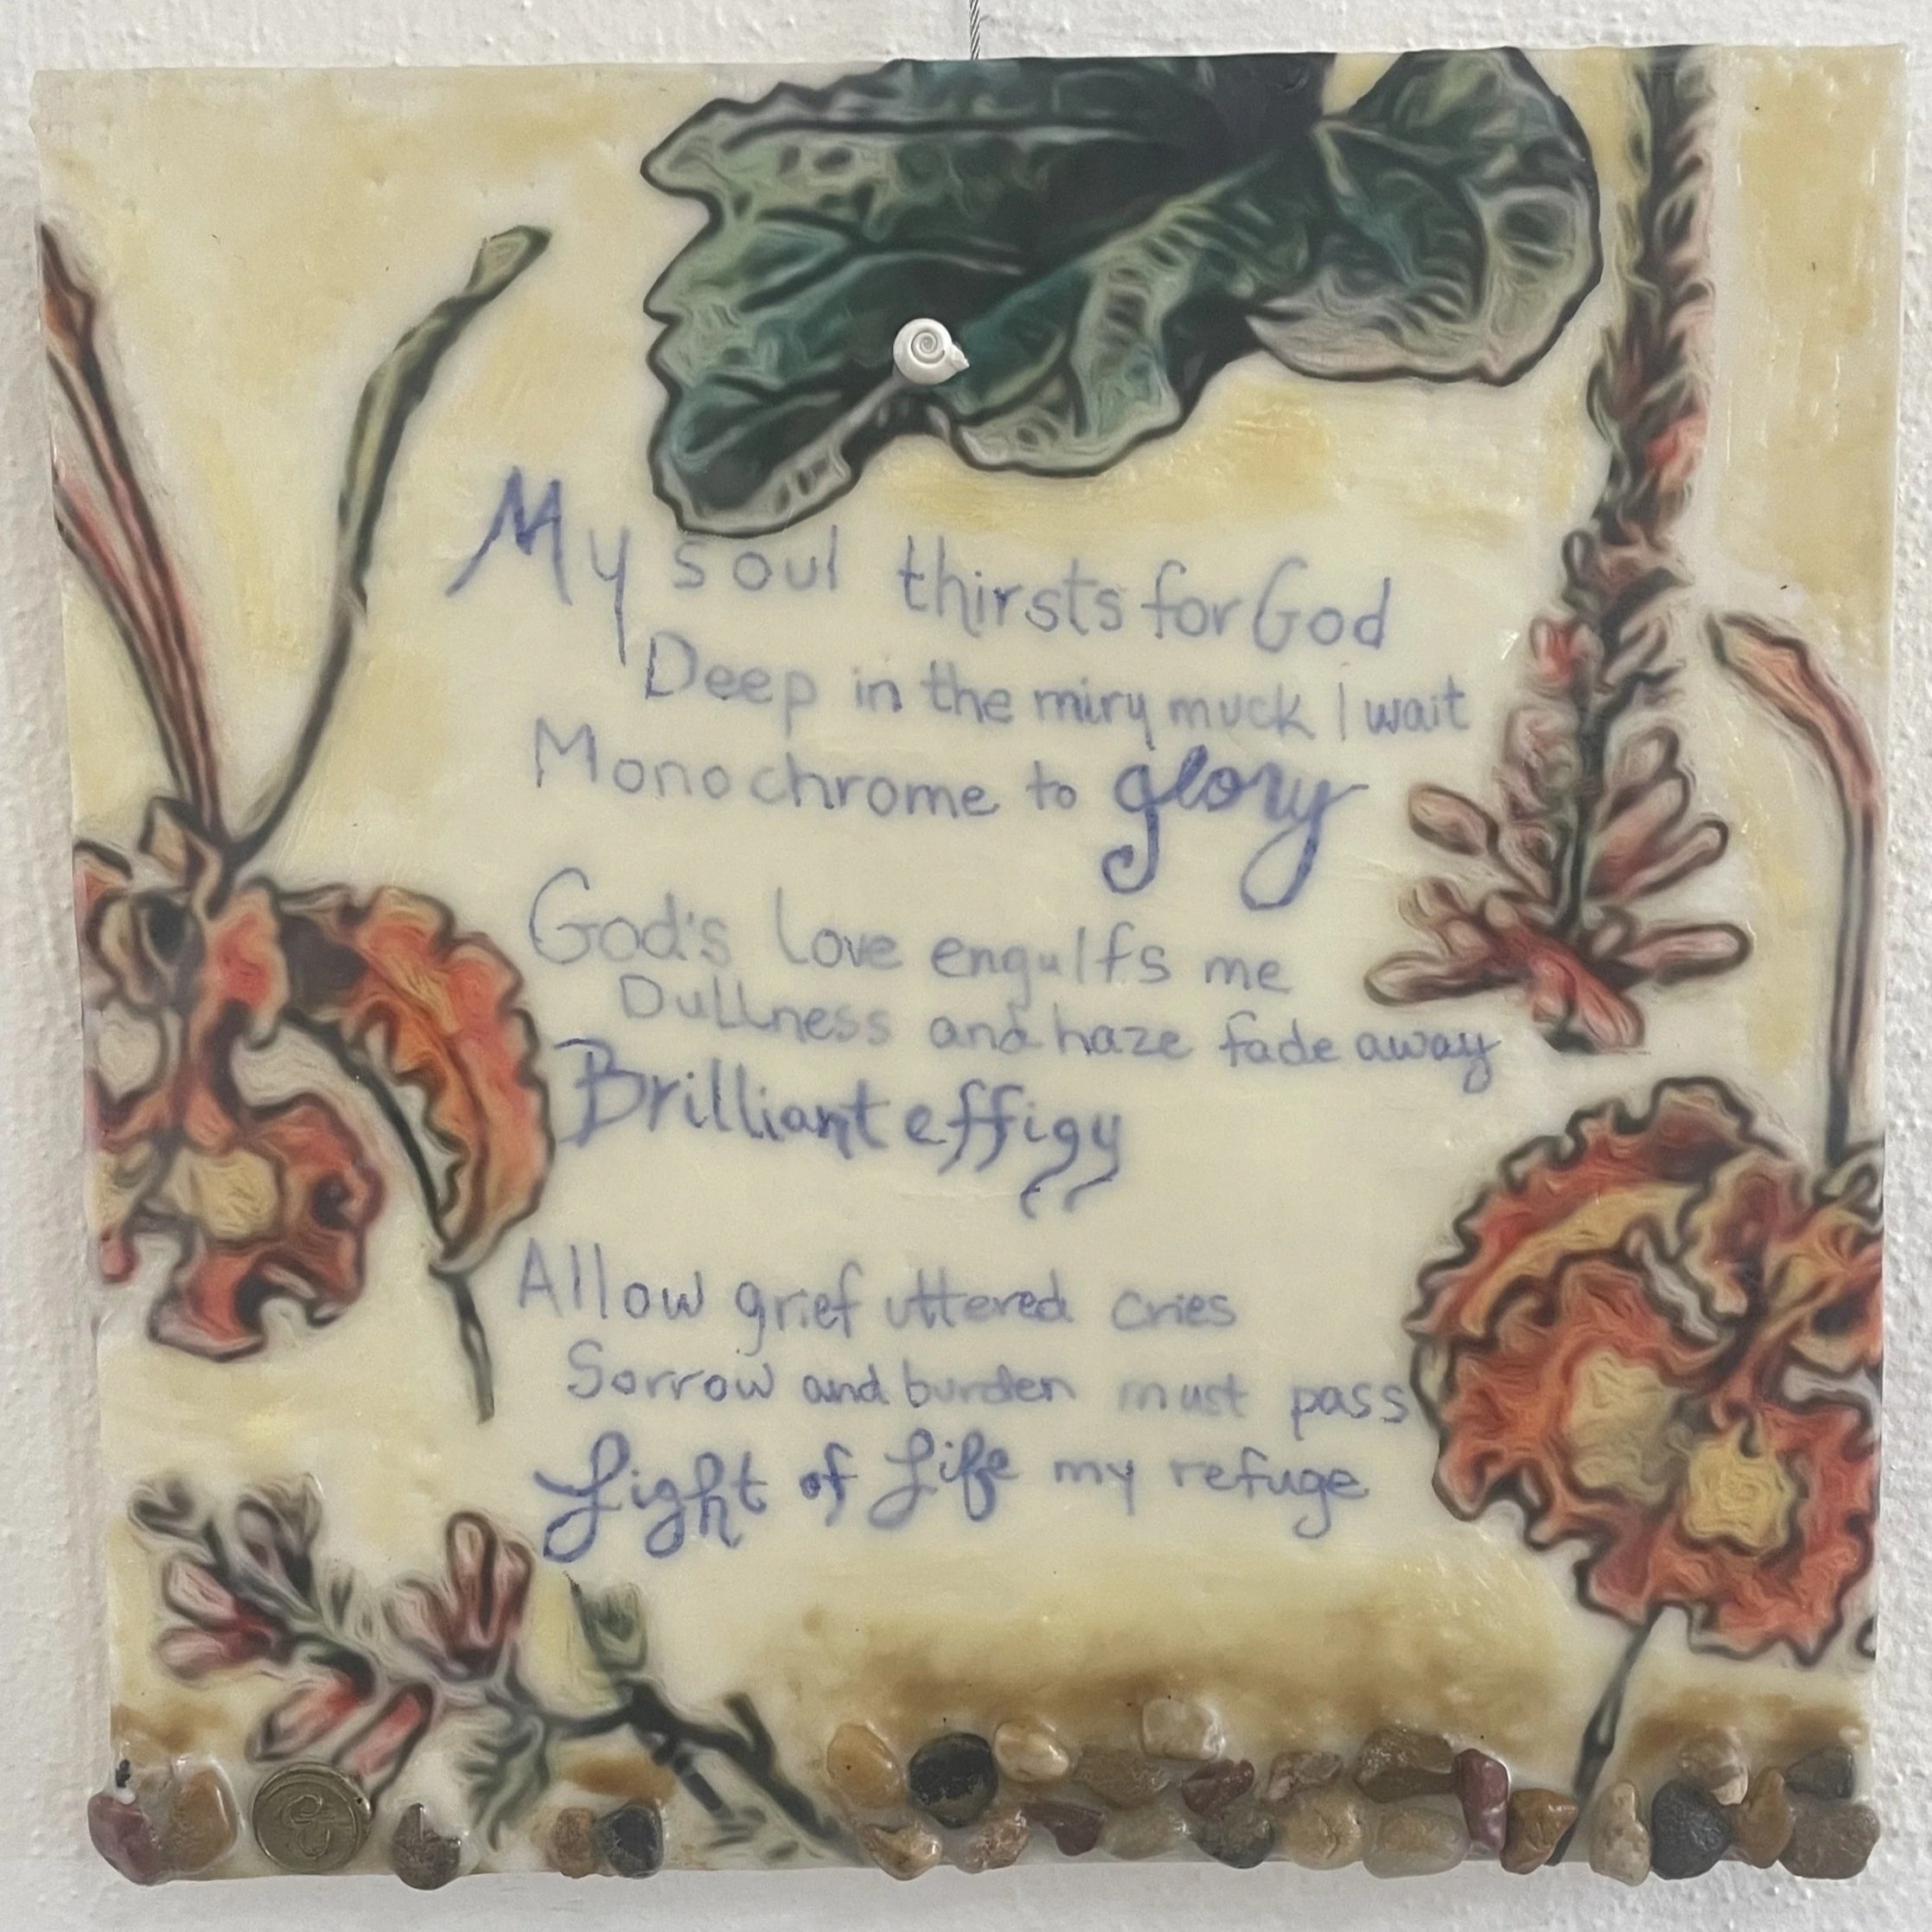 My soul thirsts for God
Deep in the miry muck I wait
Monochrome to glory
God's love engulfs me
Dullness and haze fade away
Brilliant effigy
Allow grief uttered cries
Sorrow and burden must pass
Light of Life my refuge